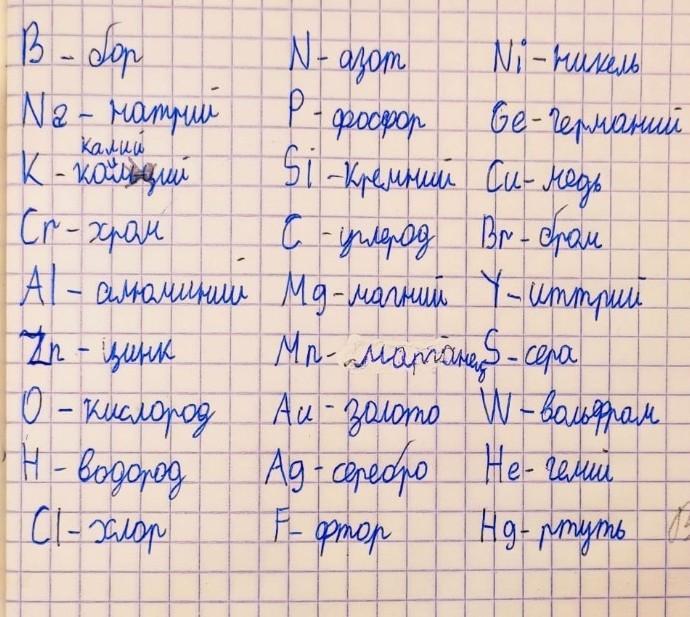 B - бор N - азот Ni - никель
Na - натрий P - фосфор Ge - германий
калий
K - Si - кремний Cu - медь
Cr - хром C - углерод Br - бром
Al - алюминий Mg - магний Y - иттрий
Zn - цинк Mn - марганец S - сера
O - кислород Au - золото W - вольфрам
H - водород Ag - серебро He - гелий
Cl - хлор F - фтор Hg - ртуть